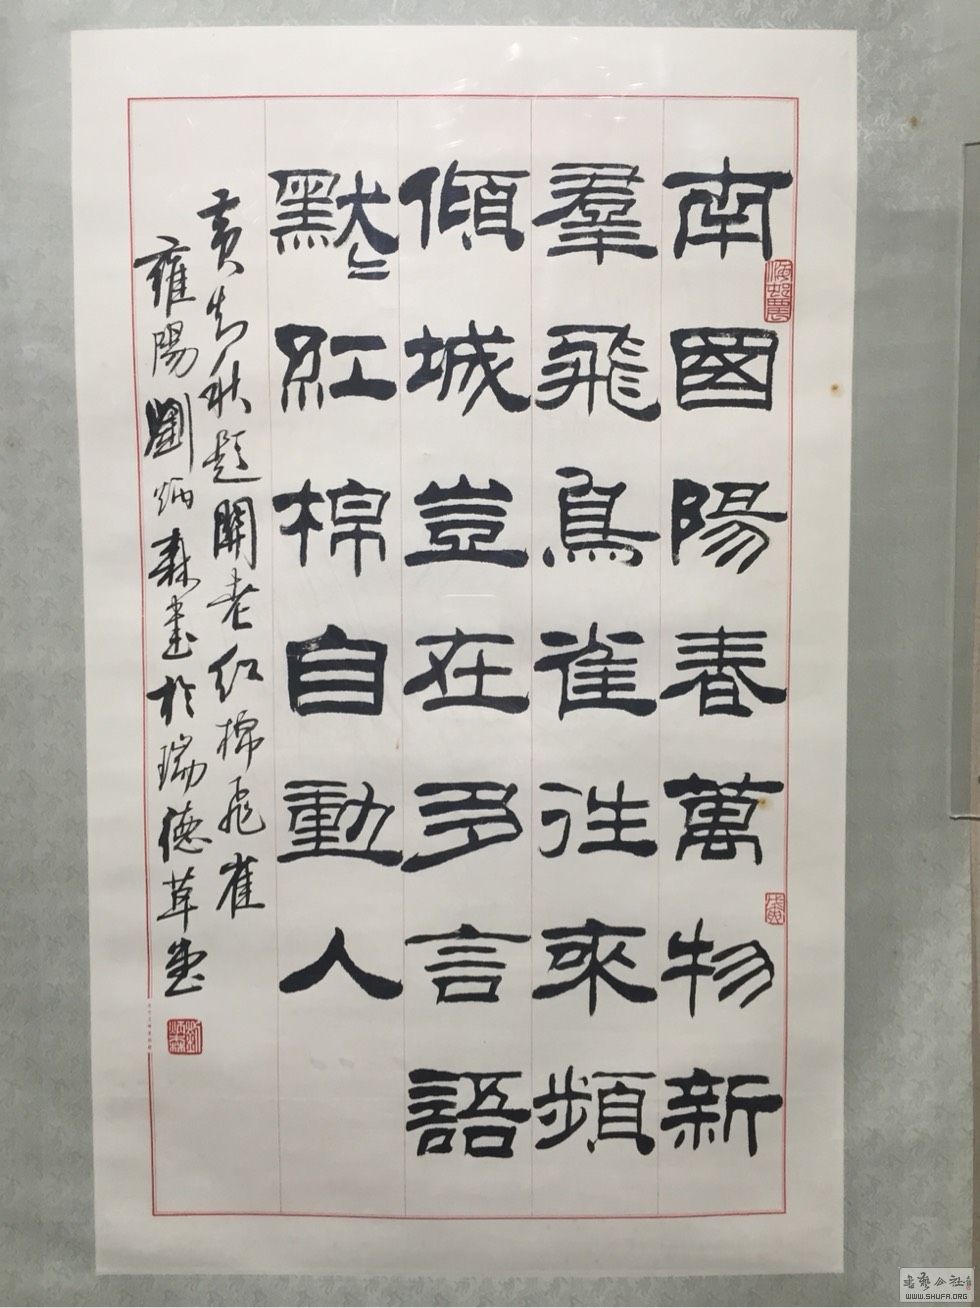 南國陽春萬物新
羣飛鳥雀往來頻
傾城豈在多言語
默〻紅棉自動人
黃知秋題關老紅棉飛雀
雍陽劉炳森書於瑞德草堂
劉炳森
書藝公社
WWW.SHUFA.ORG